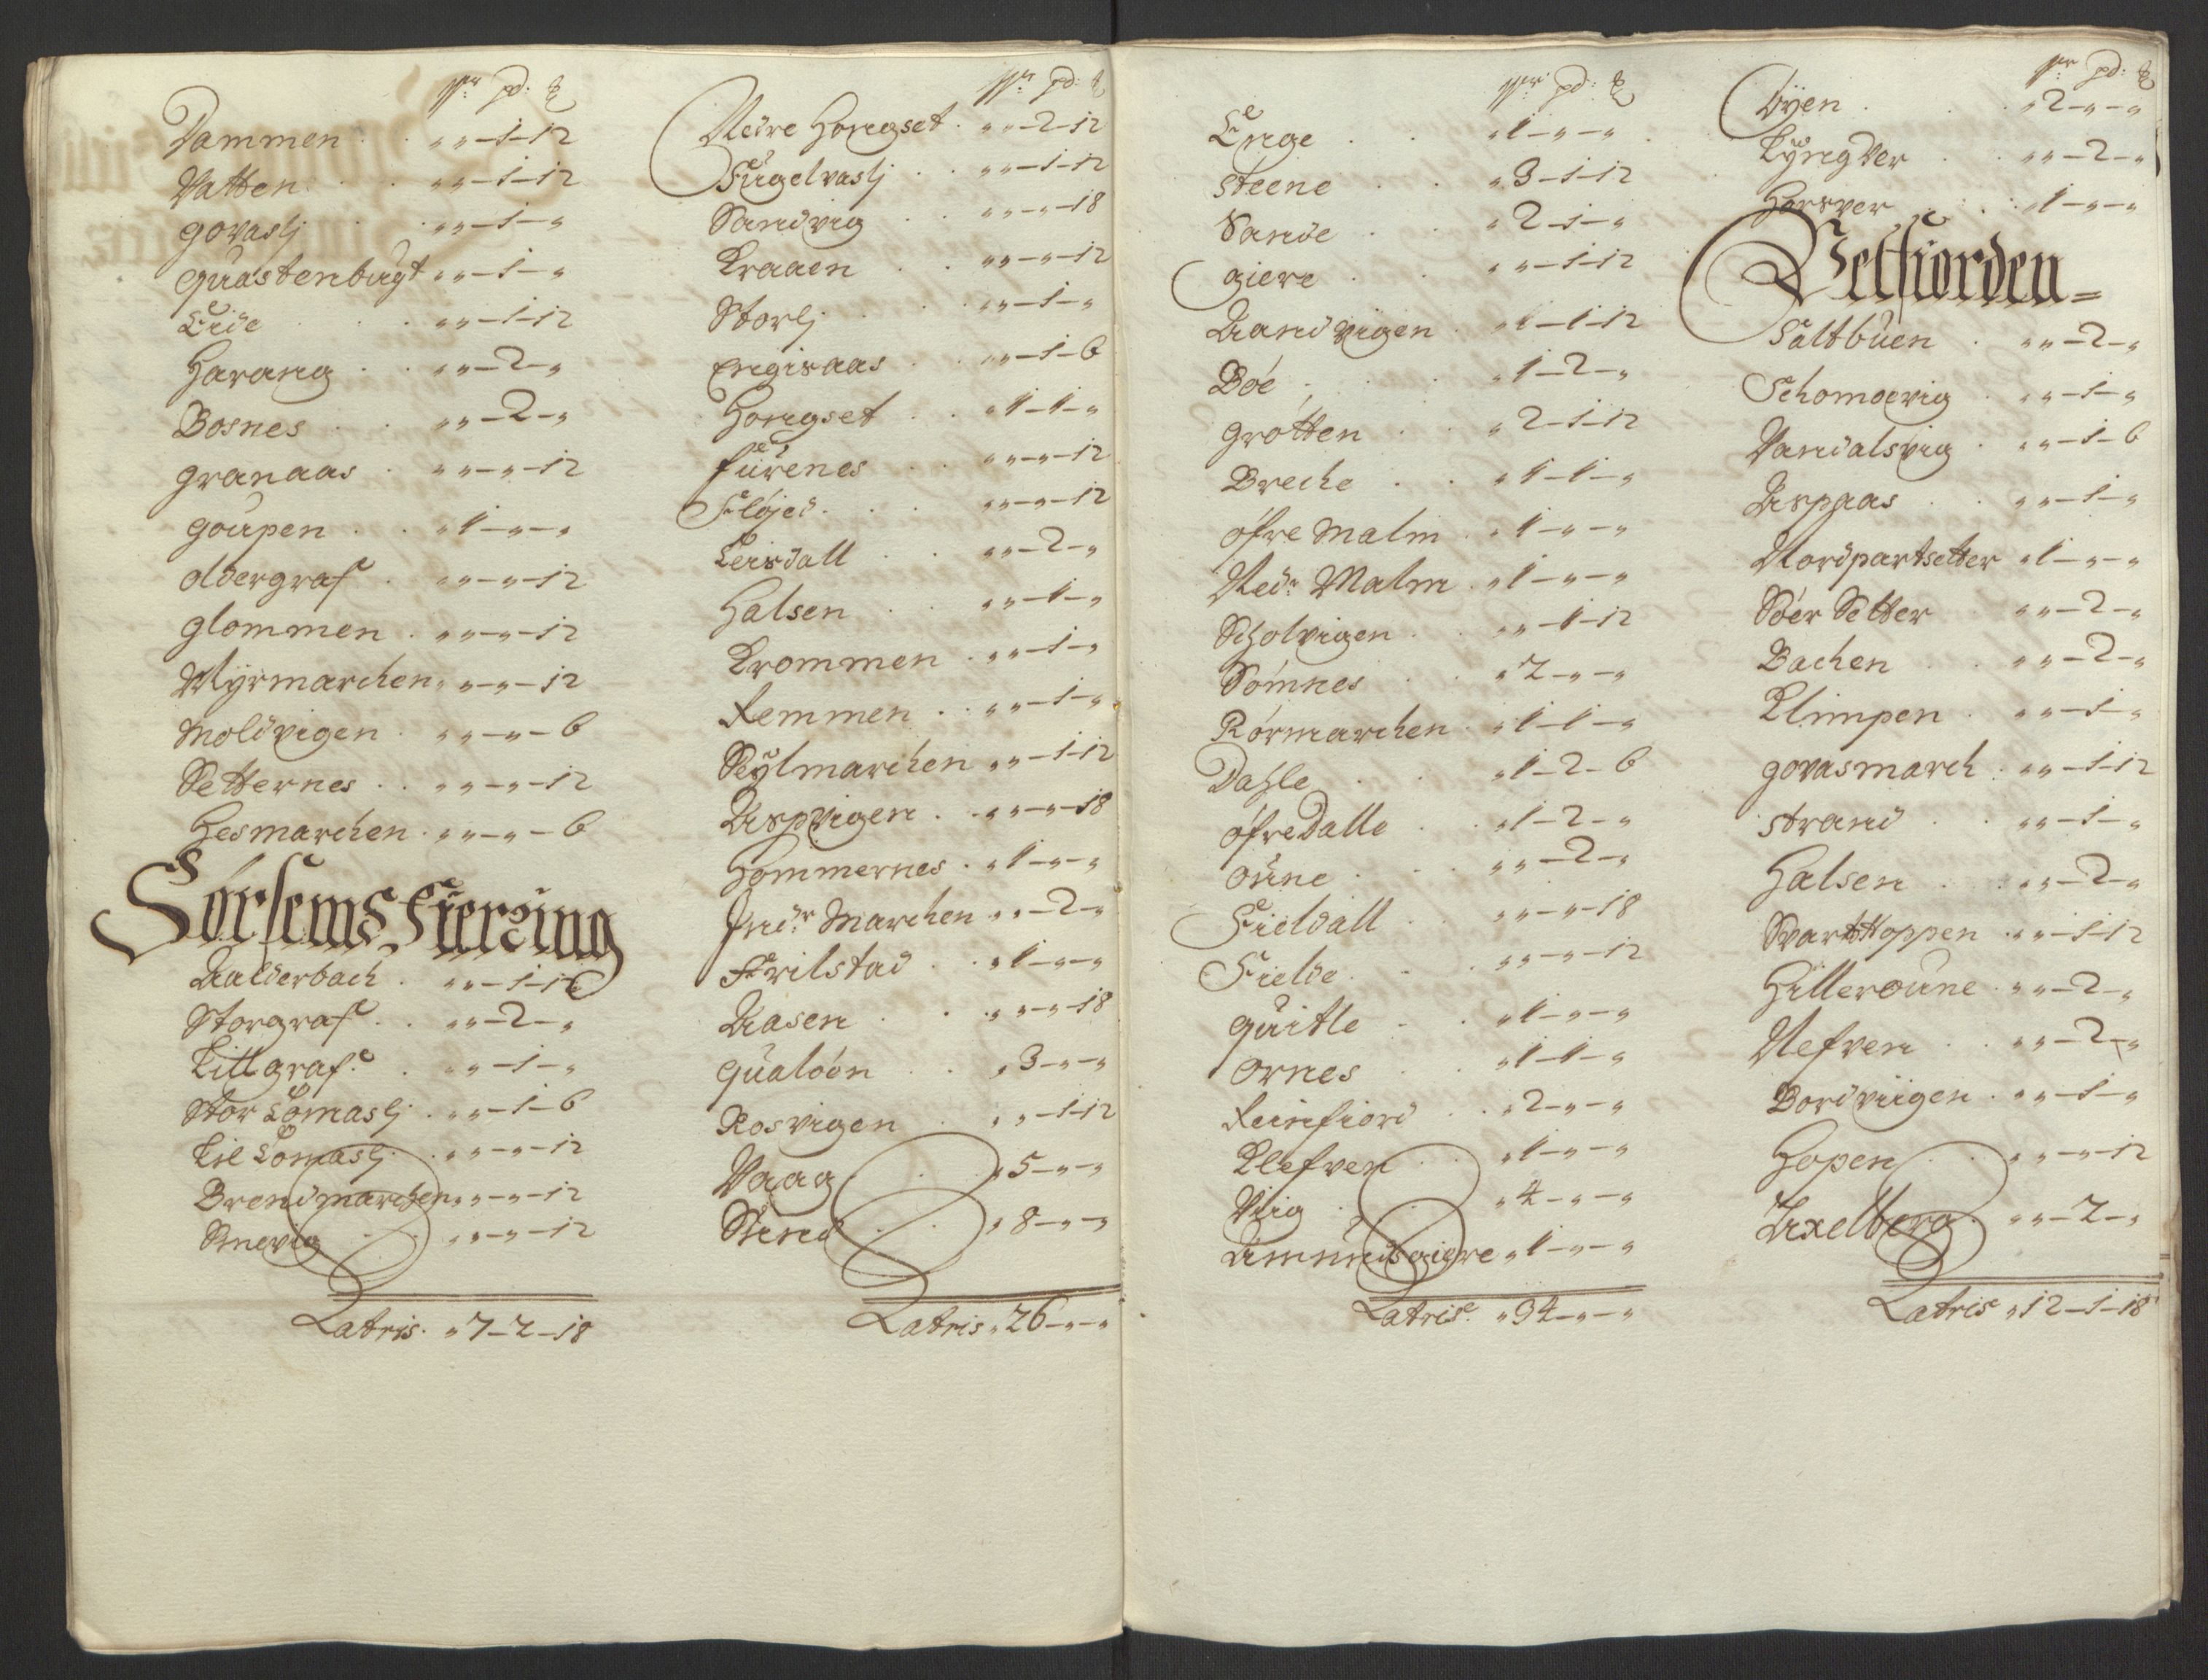 spr pd: ℔
Dammen . . „ „ - 1 - 12
Vatten . . „ „ - 1 - 12
Govaslj . . „ „ - 1 - „
Quastenbugt „ „ - 1 - „
Eide . . „ „ - 1 - 12
Harang . . „ „ - 2 - „
Bosnes . . „ „ - 2 - „
Granaas . „ „ - „ - 12
Goupen . . „ 1 - „ - „
Oldergraf . „ „ - „ - 12
Glommen . „ „ - „ - 12
Myrmarchen „ „ - „ - 12
Moldvigen . „ „ - „ - 6
Setternes . . „ „ - „ - 12
Hesmarchen . „ „ - „ - 6
Sørsems Fierding
Aalderbach . „ „ - 1 - 12
Storgraf . . „ „ - 2 - „
Litlgraf . . „ „ - 1 - „
Stor Lomaslj . „ „ - 1 - 6
Lil Lomaslj . „ „ - „ - 12
Brendmarchen „ „ - „ - 12
Smevig . . „ „ - „ - 12
Latris . „ 7 - 2 - 18
spr pd: ℔
Nedre Hongset . „ „ - 2 - 12
Fugelvaslj . . „ „ - 1 - 12
Sandvig . . „ „ - „ - 18
Kraaen . . „ „ - „ - 12
Storlj . . „ „ - 1 - „
Engisaas . . „ „ - 1 - 6
Hongset . . „ 1 - 1 - „
Furenes . . „ „ - „ - 12
Fløjed . . . „ „ - „ - 12
Leisdall . . „ „ - 2 - „
Halsen . . „ „ - 1 - „
Krommen . „ „ - 1 - „
Remmen . . „ „ - 1 - „
Seylmarchen „ „ - 1 - 12
Aspvigen . . „ „ - „ - 18
Hommernes . „ 1 - „ - „
Indr Marchen „ „ - 2 - „
Frilstad . . „ 1 - „ - „
Aasen . . „ „ - „ - 18
Qualøen . . „ 3 - „ - „
Rosvigen . „ „ - 1 - 12
Vaag . . „ 5 - „ - „
Stend . . „ 8 - „ - „
Latris „ 26 - „ - „
spr pd: ℔
Enge . . „ 1 - „ - „
Steene . . „ 3 - 1 - 12
Sande . . „ 2 - 1 - „
Giere . . „ „ - 1 - 12
Aandvigen . „ 1 - 1 - 12
Bøe . . „ 1 - 2 - „
Grøtten . . „ 2 - 1 - 12
Breche . . „ 1 - 1 - „
Øfre Malm . „ 1 - „ - „
Nedr Malm . „ 1 - „ - „
Scholvigen . „ „ - 1 - 12
Sømnes . . „ 7 - „ - „
Rørmarchen . „ 1 - 1 - „
Dahle . . „ 1 - 2 - 6
Øfre Dalle . „ 1 - 2 - „
Oune . . „ „ - 2 - „
Fieldall . . „ „ - „ - 18
Fielde . . „ „ - „ - 12
Quitle . . „ 1 - „ - „
Ornes . . „ 1 - 1 - „
Reinfiord . . „ 2 - „ - „
Klefven . . „ 1 - „ - „
Viig . . „ 4 - „ - „
Amundsgiere „ 1 - „ - „
Latris . „ 34 - „ - „
spr pd: ℔
Øyen . . „ 2 - „ - „
Lyngver . . „ „ - 2 - „
Horsver . . „ 1 - „ - „
Velfiorden =
Saltbuen . „ „ - 2 - „
Schomoevig . „ „ - 1 - „
Vandalsvig . „ „ - 1 - 6
Aspaas . . „ „ - 1 - „
Nordpartsetter „ 1 - „ - „
Søer Setter „ „ - 2 - „
Bachen . . „ „ - 2 - „
Klimpen . „ „ - 1 - „
Govasmarch . „ „ - 1 - 12
Strand . . „ „ - 1 - „
Halsen . . „ „ - 2 - „
Svarthoppen . „ „ - 1 - 12
Hilleroune . „ „ - 2 - „
Nefven . . „ „ - 2 - „
Bordviigen . „ „ - 1 - „
Hopen . . „ „ - „ - 12
Axelberg . „ „ - 2 - „
Latris „ 12 - 1 - 18